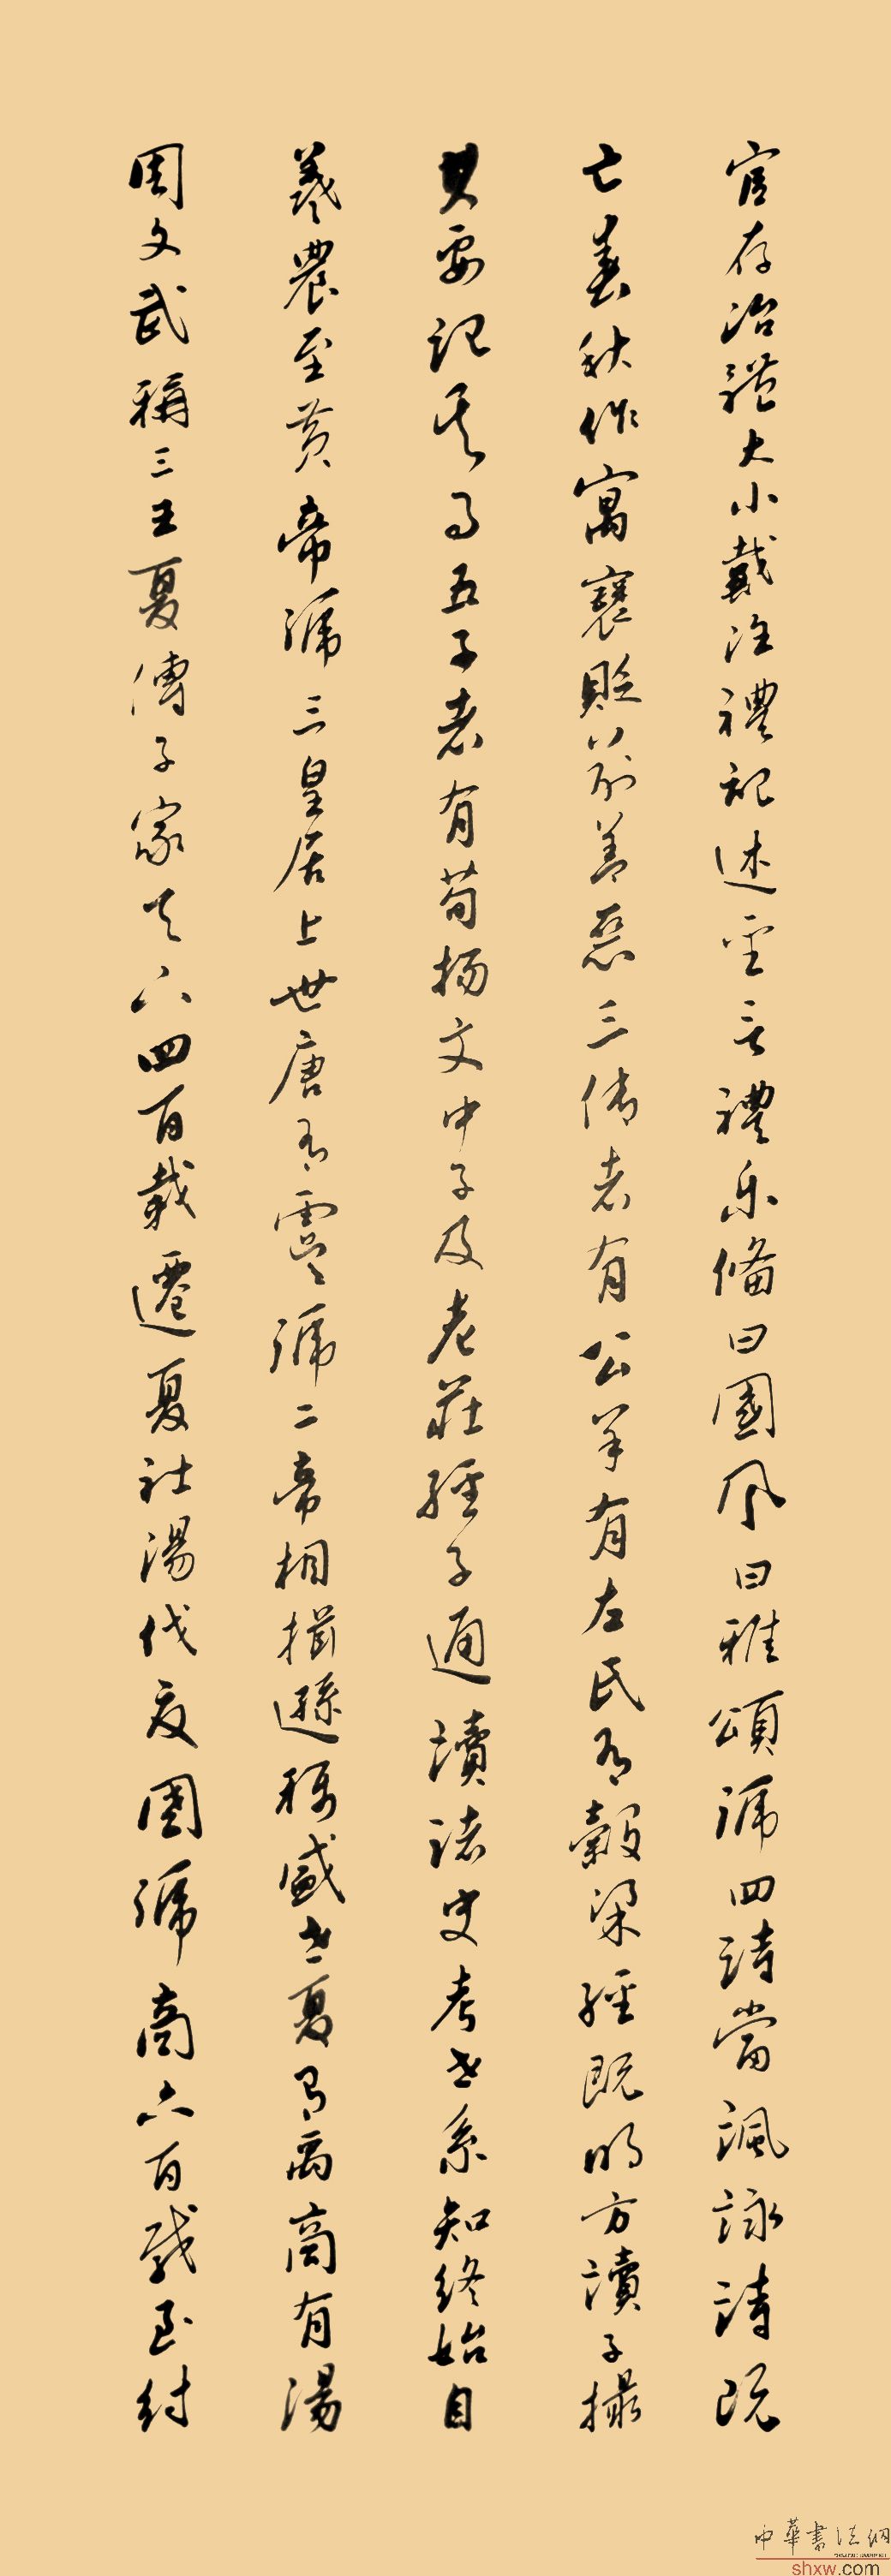 官存治體大小戴注禮記述聖言禮樂備曰國風曰雅頌號四詩當諷詠詩既
亡春秋作寓褒貶別善惡三傳者有公羊有左氏有穀梁經既明方讀子撮
其要記其事五子者有荀揚文中子及老莊經子通讀諸史考世系知終始自
羲農至黃帝號三皇居上世唐有虞號二帝相揖遜稱盛世夏有禹商有湯
周文武稱三王夏傳子家天下四百載遷夏社湯伐夏國號商六百載至紂
中華書法網
shxw.com